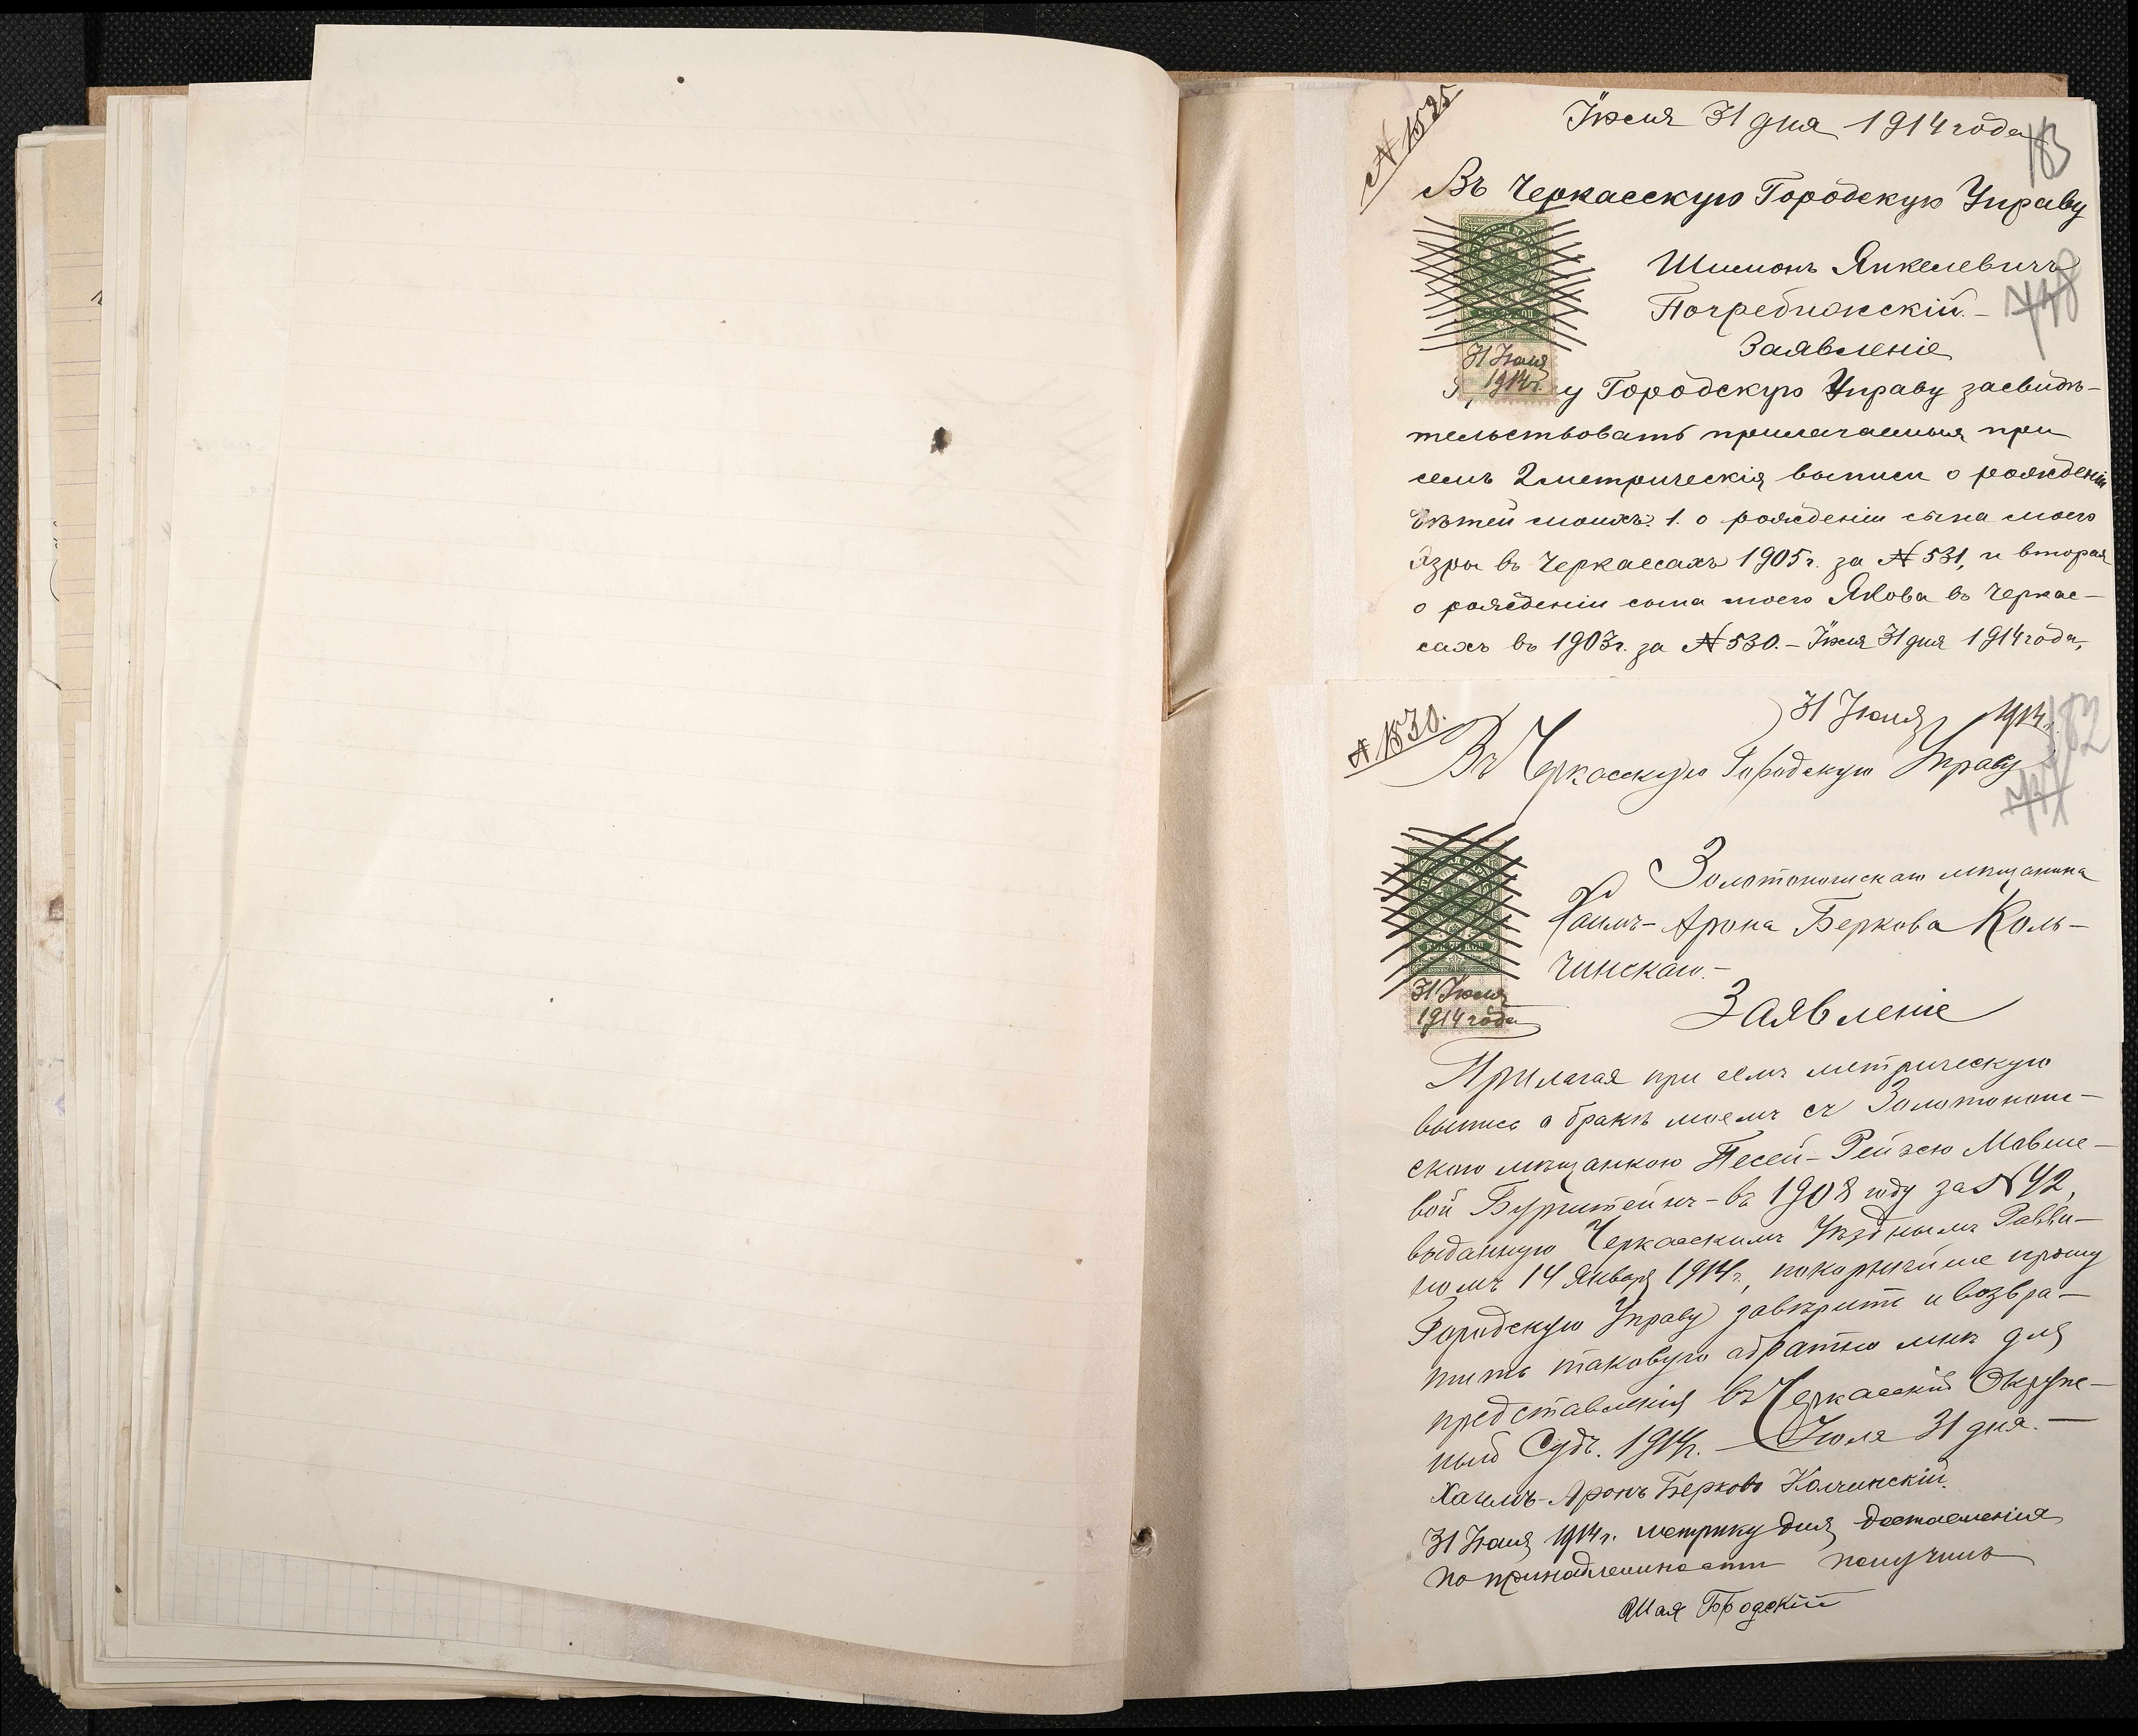 N 1525
Іюля 31 дня 1914 года
183
Въ Черкасскую Городскую Управу
Шимонъ Янкелевичъ
748
Погребижскій.-
Заявленіе
31 Іюля
1914 г.
у Городскую Управу засвидѣ-
тельствовать прилагаемыя при
семъ 2 метрическія выписи о рожденіи
дѣтей моихъ: 1. о рожденіи сына моего
Азры въ Черкассахъ 1905 г. за N 531, и вторая
о рожденіи сына моего Якова въ Черкас-
сахъ въ 1903 г. за N 530.- Іюля 31 дня 1914 года,
31 Іюля 1914 г.
N 1530.
182
Въ Черкасскую Городскую Управу
Золотоношскаго мѣщанина
Хаимъ-Арона Беркова Коль-
чинскаго.-
31 Іюля
1914 года
Заявленіе
Прилагая при семъ метрическую
выпись о бракѣ моемъ съ Золотонош-
скою мѣщанкою Песей-Рейзею Мовше-
вой Бурштейнъ - въ 1908 году за N 42,
выданную Черкасскимъ Уѣзднымъ Равви-
номъ 14 Января 1914 г., покорнѣйше прошу
Городскую Управу завѣрить и возвра-
тить таковую обратно мнѣ для
представленія въ Черкасскій Окруж-
ный Судъ. 1914 г. - Іюля 31 дня.-
Хаимъ-Аронъ Берковъ Колчинскій.
31 Іюля 1914 г. метрику для доставленія
по принадлежности получилъ
Шая Бродскій